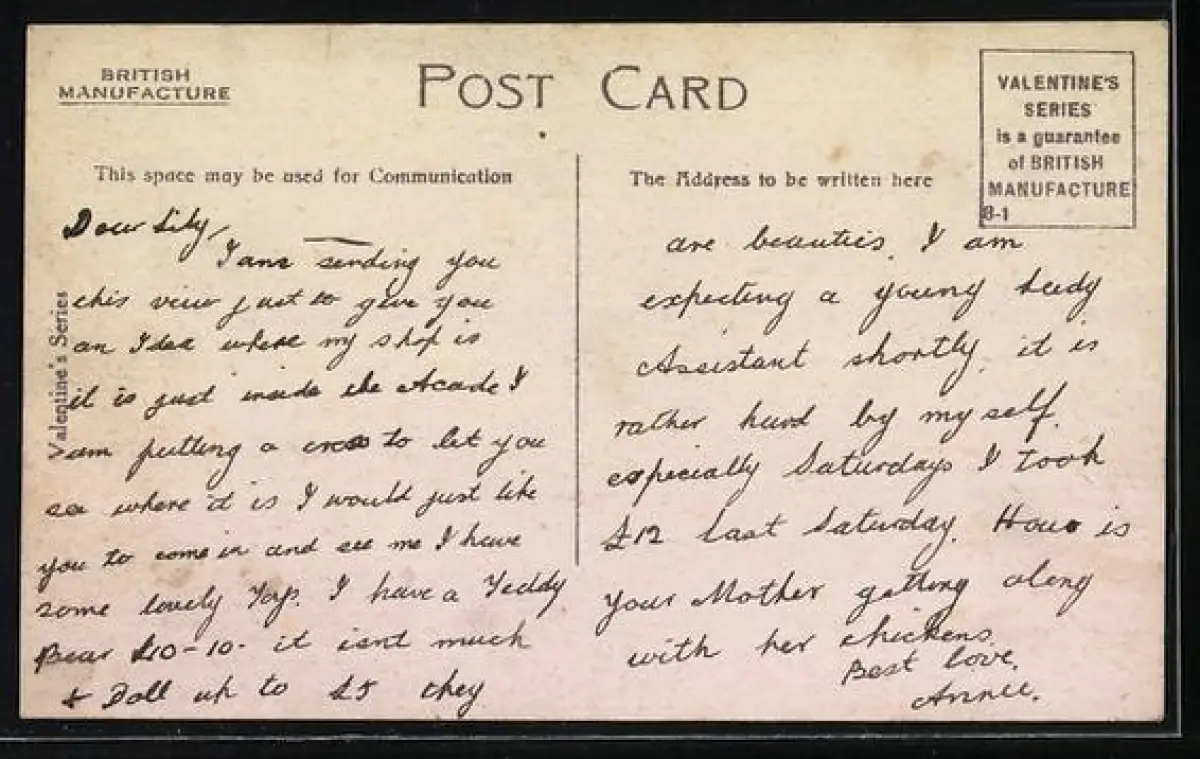 BRITISH
MANUFACTURE
POST CARD
VALENTINE'S
SERIES
is a guarantee
of BRITISH
MANUFACTURE
B-1
This space may be used for Communication
The Address to be written here
Valentine's Series
Dear Lily,
I am sending you
this view just to give you
an Idea where my shop is
it is just inside the Acade I
am putting a cross to let you
see where it is I would just like
you to come in and see me I have
some lovely Toys. I have a Teddy
Bear £10-10- it isnt much
& Doll up to £5 they
are beauties. I am
expecting a young Lady
Assistant shortly. it is
rather hard by my self.
especially Saturdays I took
£12 last Saturday. How is
your Mother getting along
with her chickens.
Best love.
Annie.